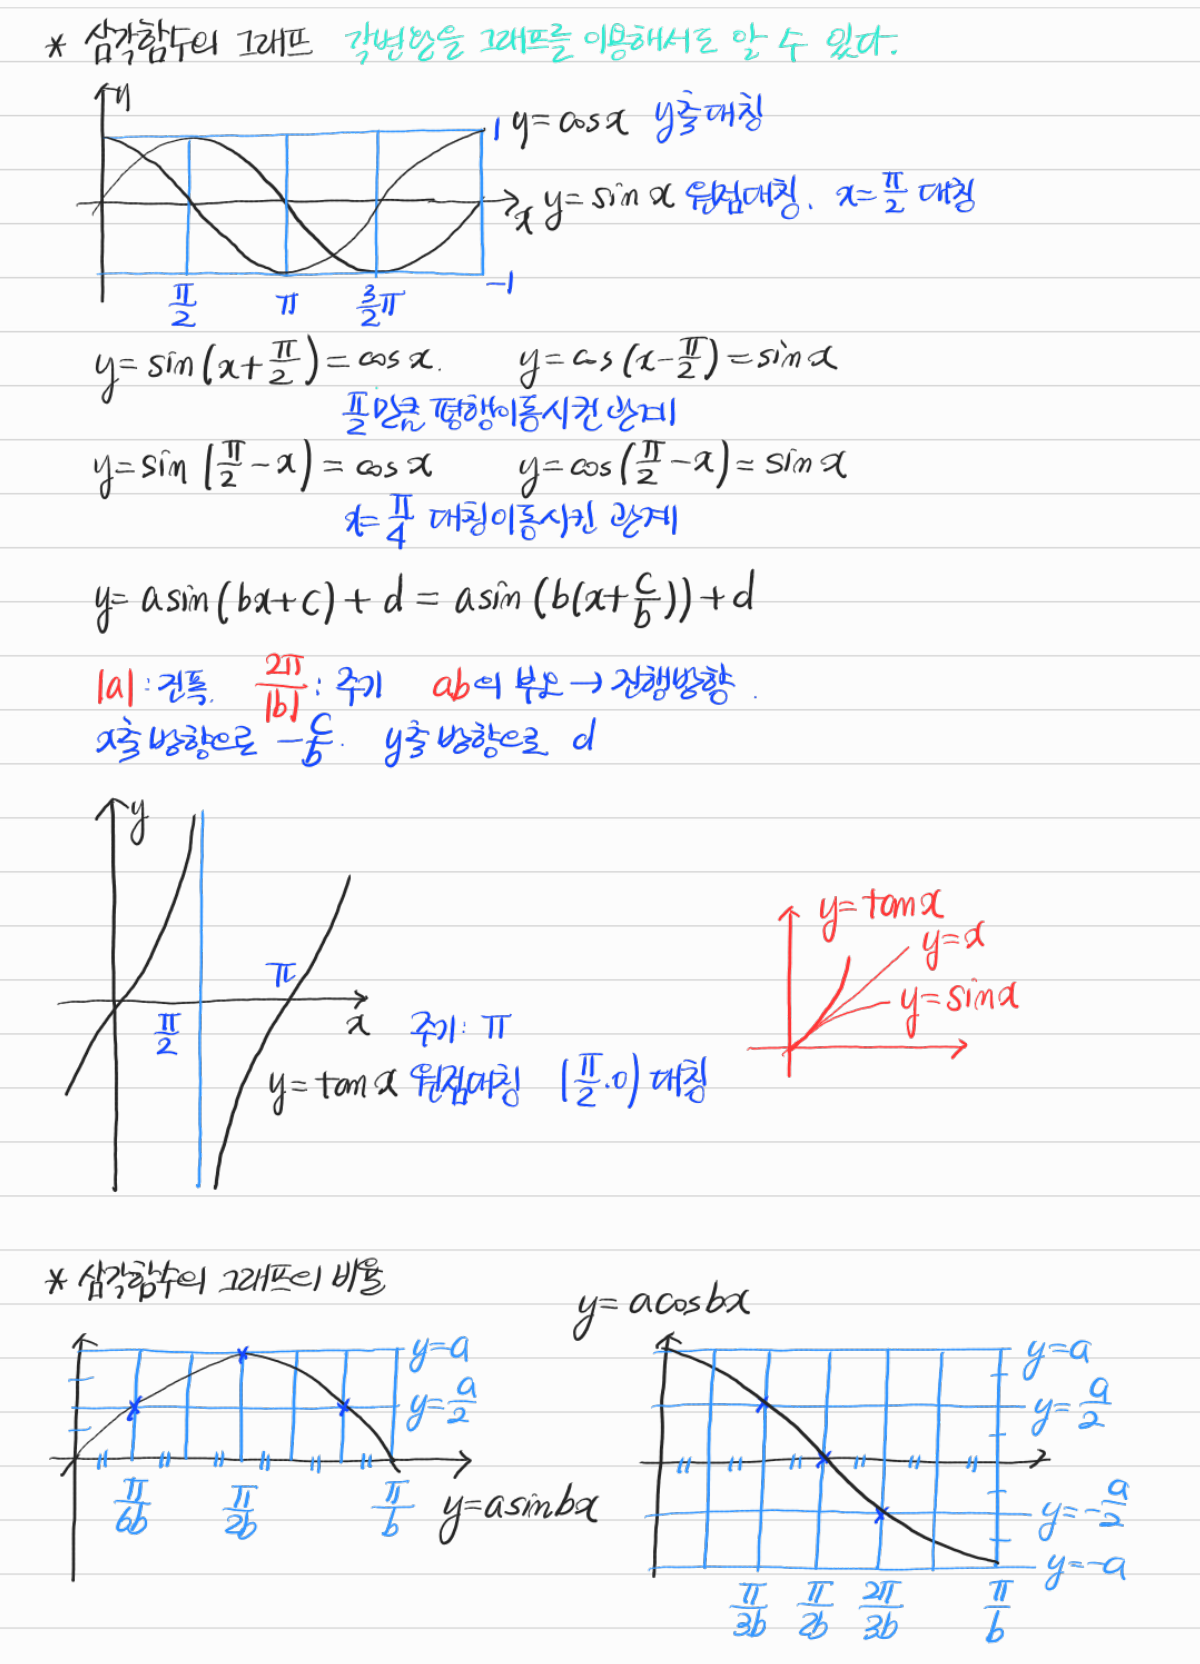 * 삼각함수의 그래프 각변환을 그래프를 이용해서도 알 수 있다.
y
1 y=cosx y축대칭
x y=sinx 원점대칭. x=π/2 대칭
π/2 π 3/2π -1
y=sin(x+π/2)=cosx. y=cos(x-π/2)=sinx
π/2만큼 평행이동시킨 관계
y=sin(π/2-x)=cosx y=cos(π/2-x)=sinx
x=π/4 대칭이동시킨 관계
y=asin(bx+c)+d=asin(b(x+c/b))+d
|a|:진폭. 2π/|b|:주기 ab의 부호→진행방향.
x축방향으로 -c/b. y축방향으로 d
y
y=tanx
y=x
y=sinx
π
π/2 x 주기: π
y=tanx 원점대칭 (π/2.0) 대칭
* 삼각함수의 그래프의 비율
y=acosbx
y=a y=a
y=a/2 y=a/2
π/6b π/2b π/b y=asinbx y=-a/2
y=-a
π/3b π/2b 2π/3b π/b